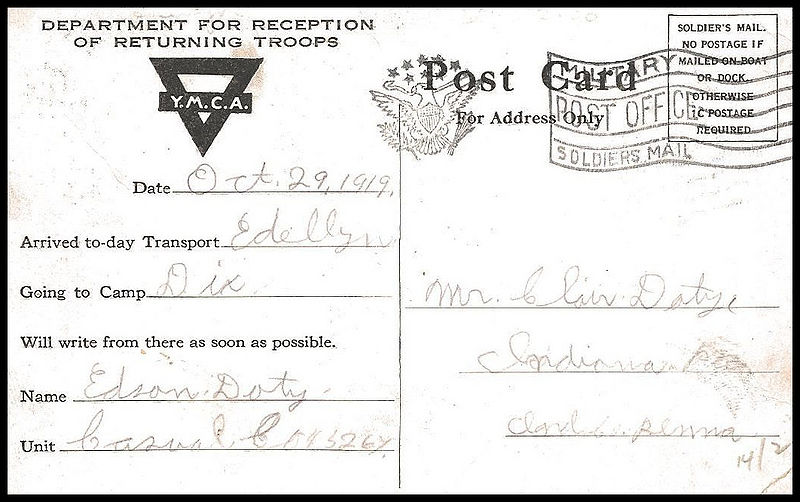 DEPARTMENT FOR RECEPTION
OF RETURNING TROOPS
Y.M.C.A.
Date Oct. 29, 1919.
Arrived to-day Transport Edellyn
Going to Camp Dix
Will write from there as soon as possible.
Name Edson Doty
Unit Casual
Post Card
For Address Only
MILITARY
POST OFFICE
SOLDIERS MAIL
SOLDIER'S MAIL.
NO POSTAGE IF
MAILED ON BOAT
OR DOCK.
OTHERWISE
1C POSTAGE
REQUIRED
Mr. Clair Doty,
Indiana
Penna
14/2